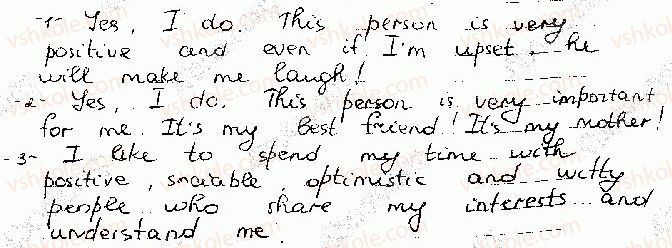 -1- Yes, I do. This person is very
positive and even if I'm upset he
will make me laugh!
-2- Yes, I do. This person is very important
for me. It's my best friend! It's my mother!
-3- I like to spend my time with
positive, sociable, optimistic and witty
people who share my interests and
understand me.